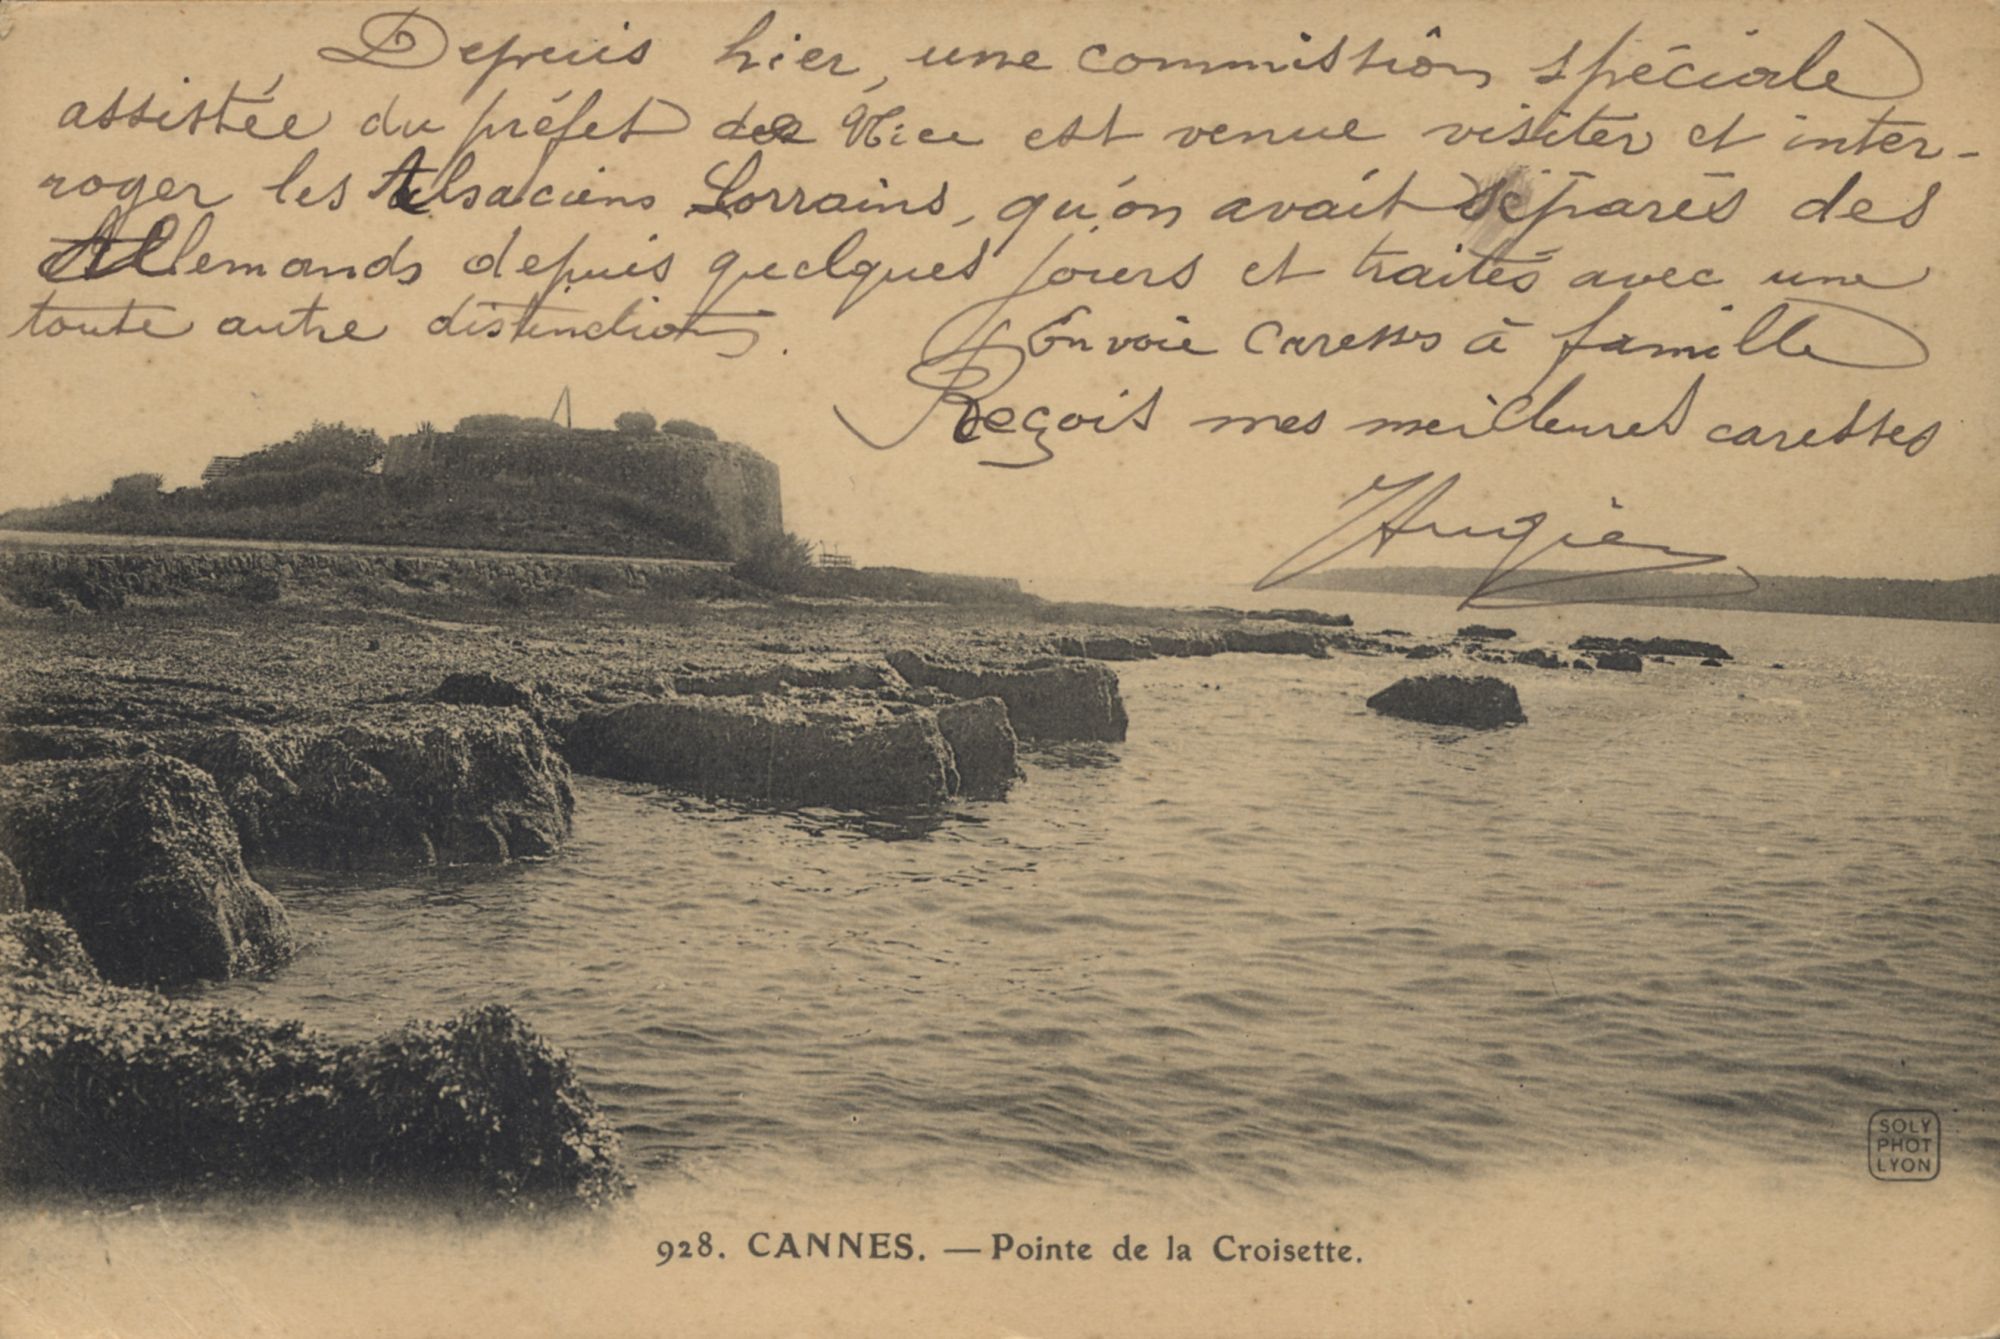 Depuis hier, une commission spéciale
assistée du préfet de Nice est venue visiter et inter-
roger les Alsaciens Lorrains, qu'on avait séparés des
Allemands depuis quelques jours et traités avec une
toute autre distinction.
Envoie caresses à famille
Reçois mes meilleures caresses
Augier
SOLY
PHOT
LYON
928. CANNES. — Pointe de la Croisette.